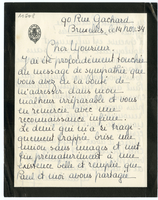 90 Rue Gachard
Bruxelles, le 14 Nov. 34
Cher Monsieur
J'ai été profondément touchée
du message de sympathie que
vous avez eu la bonté de
m'adresser dans mon
malheur irréparable et vous
en remercie avec une
reconnaissance infinie.
Le deuil qui m'a si tragi-
quement frappée, brise une
union sans nuages et met
fin prématurément à une
existence belle et remplie que
Paul et moi avons partagée